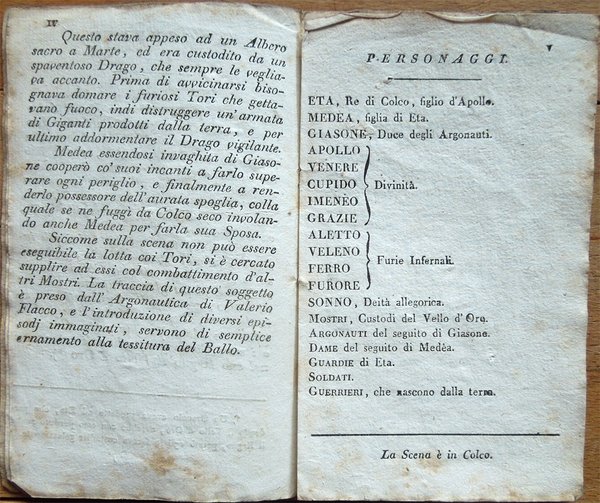 IV
Questo stava appeso ad un Albero
sacro a Marte, ed era custodito da un
spaventoso Drago, che sempre le veglia-
va accanto. Prima di avvicinarsi biso-
gnava domare i furiosi Tori che getta-
vano fuoco, indi distruggere un'armata
di Giganti prodotti dalla terra, e per
ultimo addormentare il Drago vigilante.
Medea essendosi invaghita di Giaso-
ne cooperò co'suoi incanti a farlo supe-
rare ogni periglio, e finalmente a ren-
derlo possessore dell'aurata spoglia, colla
quale se ne fuggì da Colco seco involan-
do anche Medea per farla sua Sposa.
Siccome sulla scena non può essere
eseguibile la lotta coi Tori, si è cercato
supplire ad essi col combattimento d'al-
tri Mostri. La traccia di questo soggetto
è preso dall'Argonautica di Valerio
Flacco, e l'introduzione di diversi epi-
sodj immaginati, servono di semplice
ornamento alla tessitura del Ballo.
V
PERSONAGGI.
ETA, Re di Colco, figlio d'Apollo.
MEDEA, figlia di Eta.
GIASONE, Duce degli Argonauti.
APOLLO
VENERE
CUPIDO
IMENEO
GRAZIE
Divinità.
ALETTO
VELENO
FERRO
FURORE
Furie Infernali.
SONNO, Deità allegorica.
MOSTRI, Custodi del Vello d'Oro.
ARGONAUTI del seguito di Giasone.
DAME del seguito di Medèa.
GUARDIE di Eta.
SOLDATI.
GUERRIERI, che nascono dalla terra.
La Scena è in Colco.